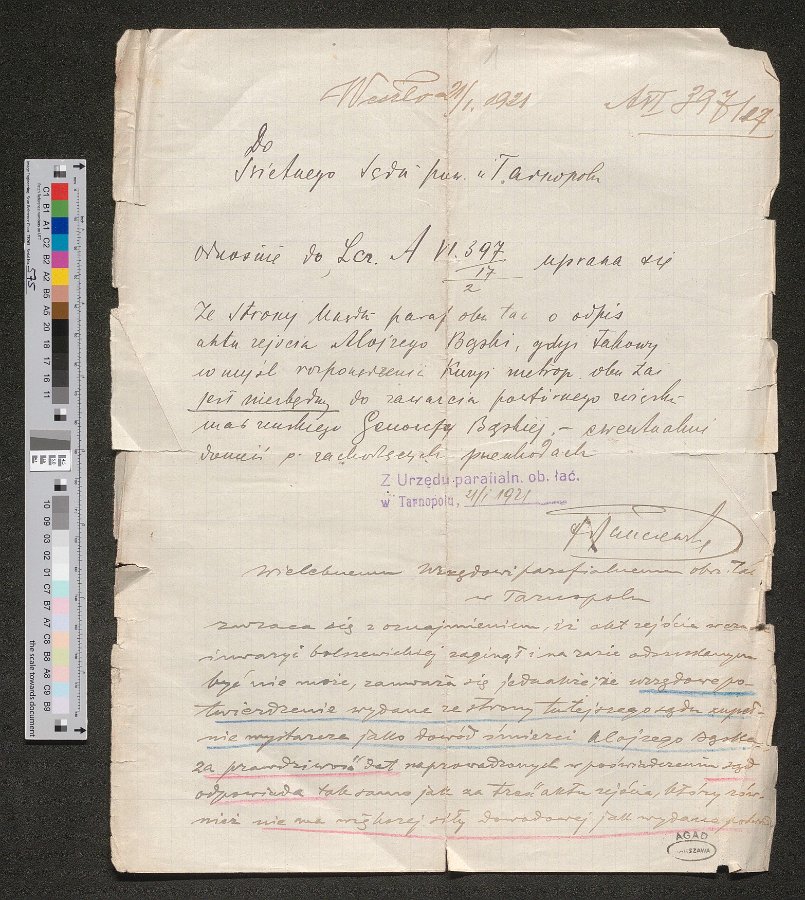 Weszło 21/1. 1921 A VI 397/17
Do
Świetnego Sądu pow. w Tarnopolu
odnośnie do Lcz. A VI. 397 uprasza się
17
2
Ze strony Urzędu paraf. obrz. łac. o odpis
aktu zejścia Alojzego Bąski, gdyż takowy
w myśl rozporządzenia Kuryi metrop. obrz. łac.
jest niezbędny do zawarcia powtórnego związku
małżeńskiego Genowefy Bąskiej, – ewentualnie
donieść o zachodzących przeszkodach
Z Urzędu parafialn. ob. łać.
w Tarnopolu, 21/I 1921
Wielebnemu Urzędowi parafialnemu obrz. łac.
w Tarnopolu
zwraca się z oznajmieniem, iż akt zejścia w czasie
inwazyi bolszewickiej zaginął i na razie odszukanym
być nie może, zauważa się jednakże, że urzędowe po-
twierdzenie wydane ze strony tutejszego sądu zupeł-
nie wystarcza jako dowód śmierci Alojzego Bąska,
za prawdziwość dat naprowadzonych w poświadczeniu sąd
odpowiada tak samo jak za treść aktu zejścia, który rów-
nież nie ma większej siły dowodowej jak wydane
AGAD
WARSZAWA
the scale towards document